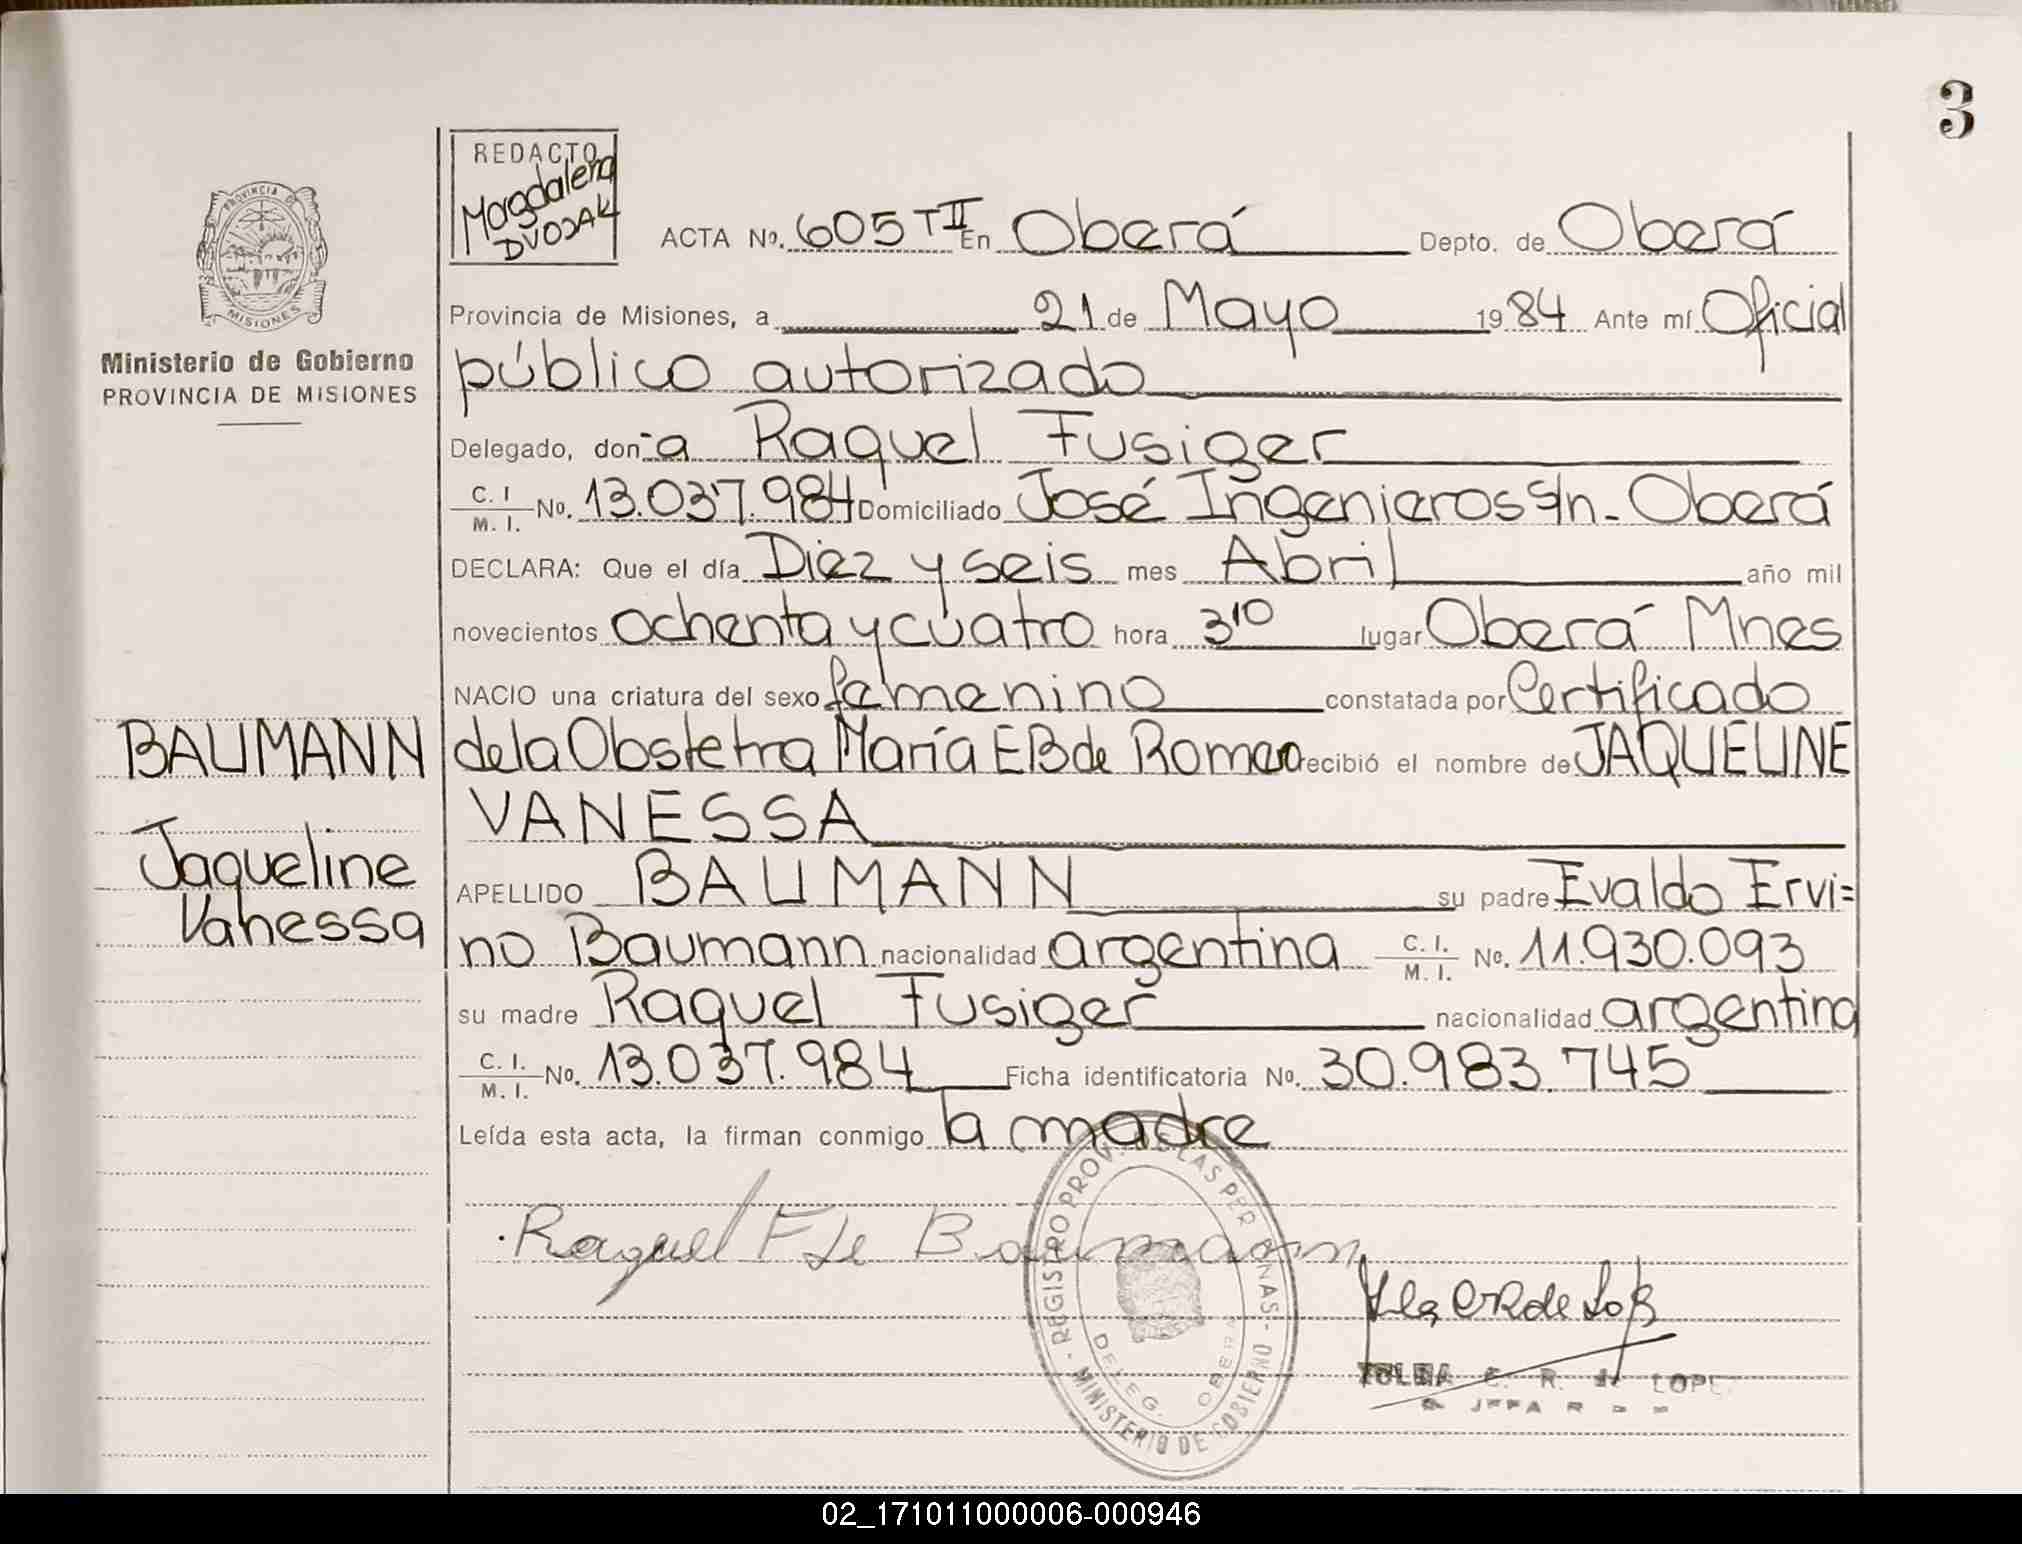 3
REDACTO
Magdalena
DVOJAK
PROVINCIA DE
MISIONES
Ministerio de Gobierno
PROVINCIA DE MISIONES
ACTA No. 605 T II En Oberá Depto. de Oberá
Provincia de Misiones, a 21 de Mayo 1984 Ante mí Oficial
público autorizado
Delegado, don-a Raquel Fusiger
C. I / M. I. No. 13.037.984 Domiciliado José Ingenieros S/n. Oberá
DECLARA: Que el día Diez y seis mes Abril año mil
novecientos ochenta y cuatro hora 3 10 lugar Oberá Mnes
NACIO una criatura del sexo femenino constatada por Certificado
BAUMANN
de la Obstetra María E B de Romero recibió el nombre de JAQUELINE
VANESSA
Jaqueline
Vanessa
APELLIDO BAUMANN su padre Evaldo Ervi=
no Baumann nacionalidad argentina C. I. / M. I. No. 11.930.093
su madre Raquel Fusiger nacionalidad argentina
C. I. / M. I. No. 13.037.984 Ficha identificatoria No. 30.983.745
Leída esta acta, la firman conmigo la madre
Raquel F de Baumann
REGISTRO PROV. DE LAS PERSONAS - MINISTERIO DE GOBIERNO -
DELEG. OBERA
C. R. de LOPE
02_171011000006-000946